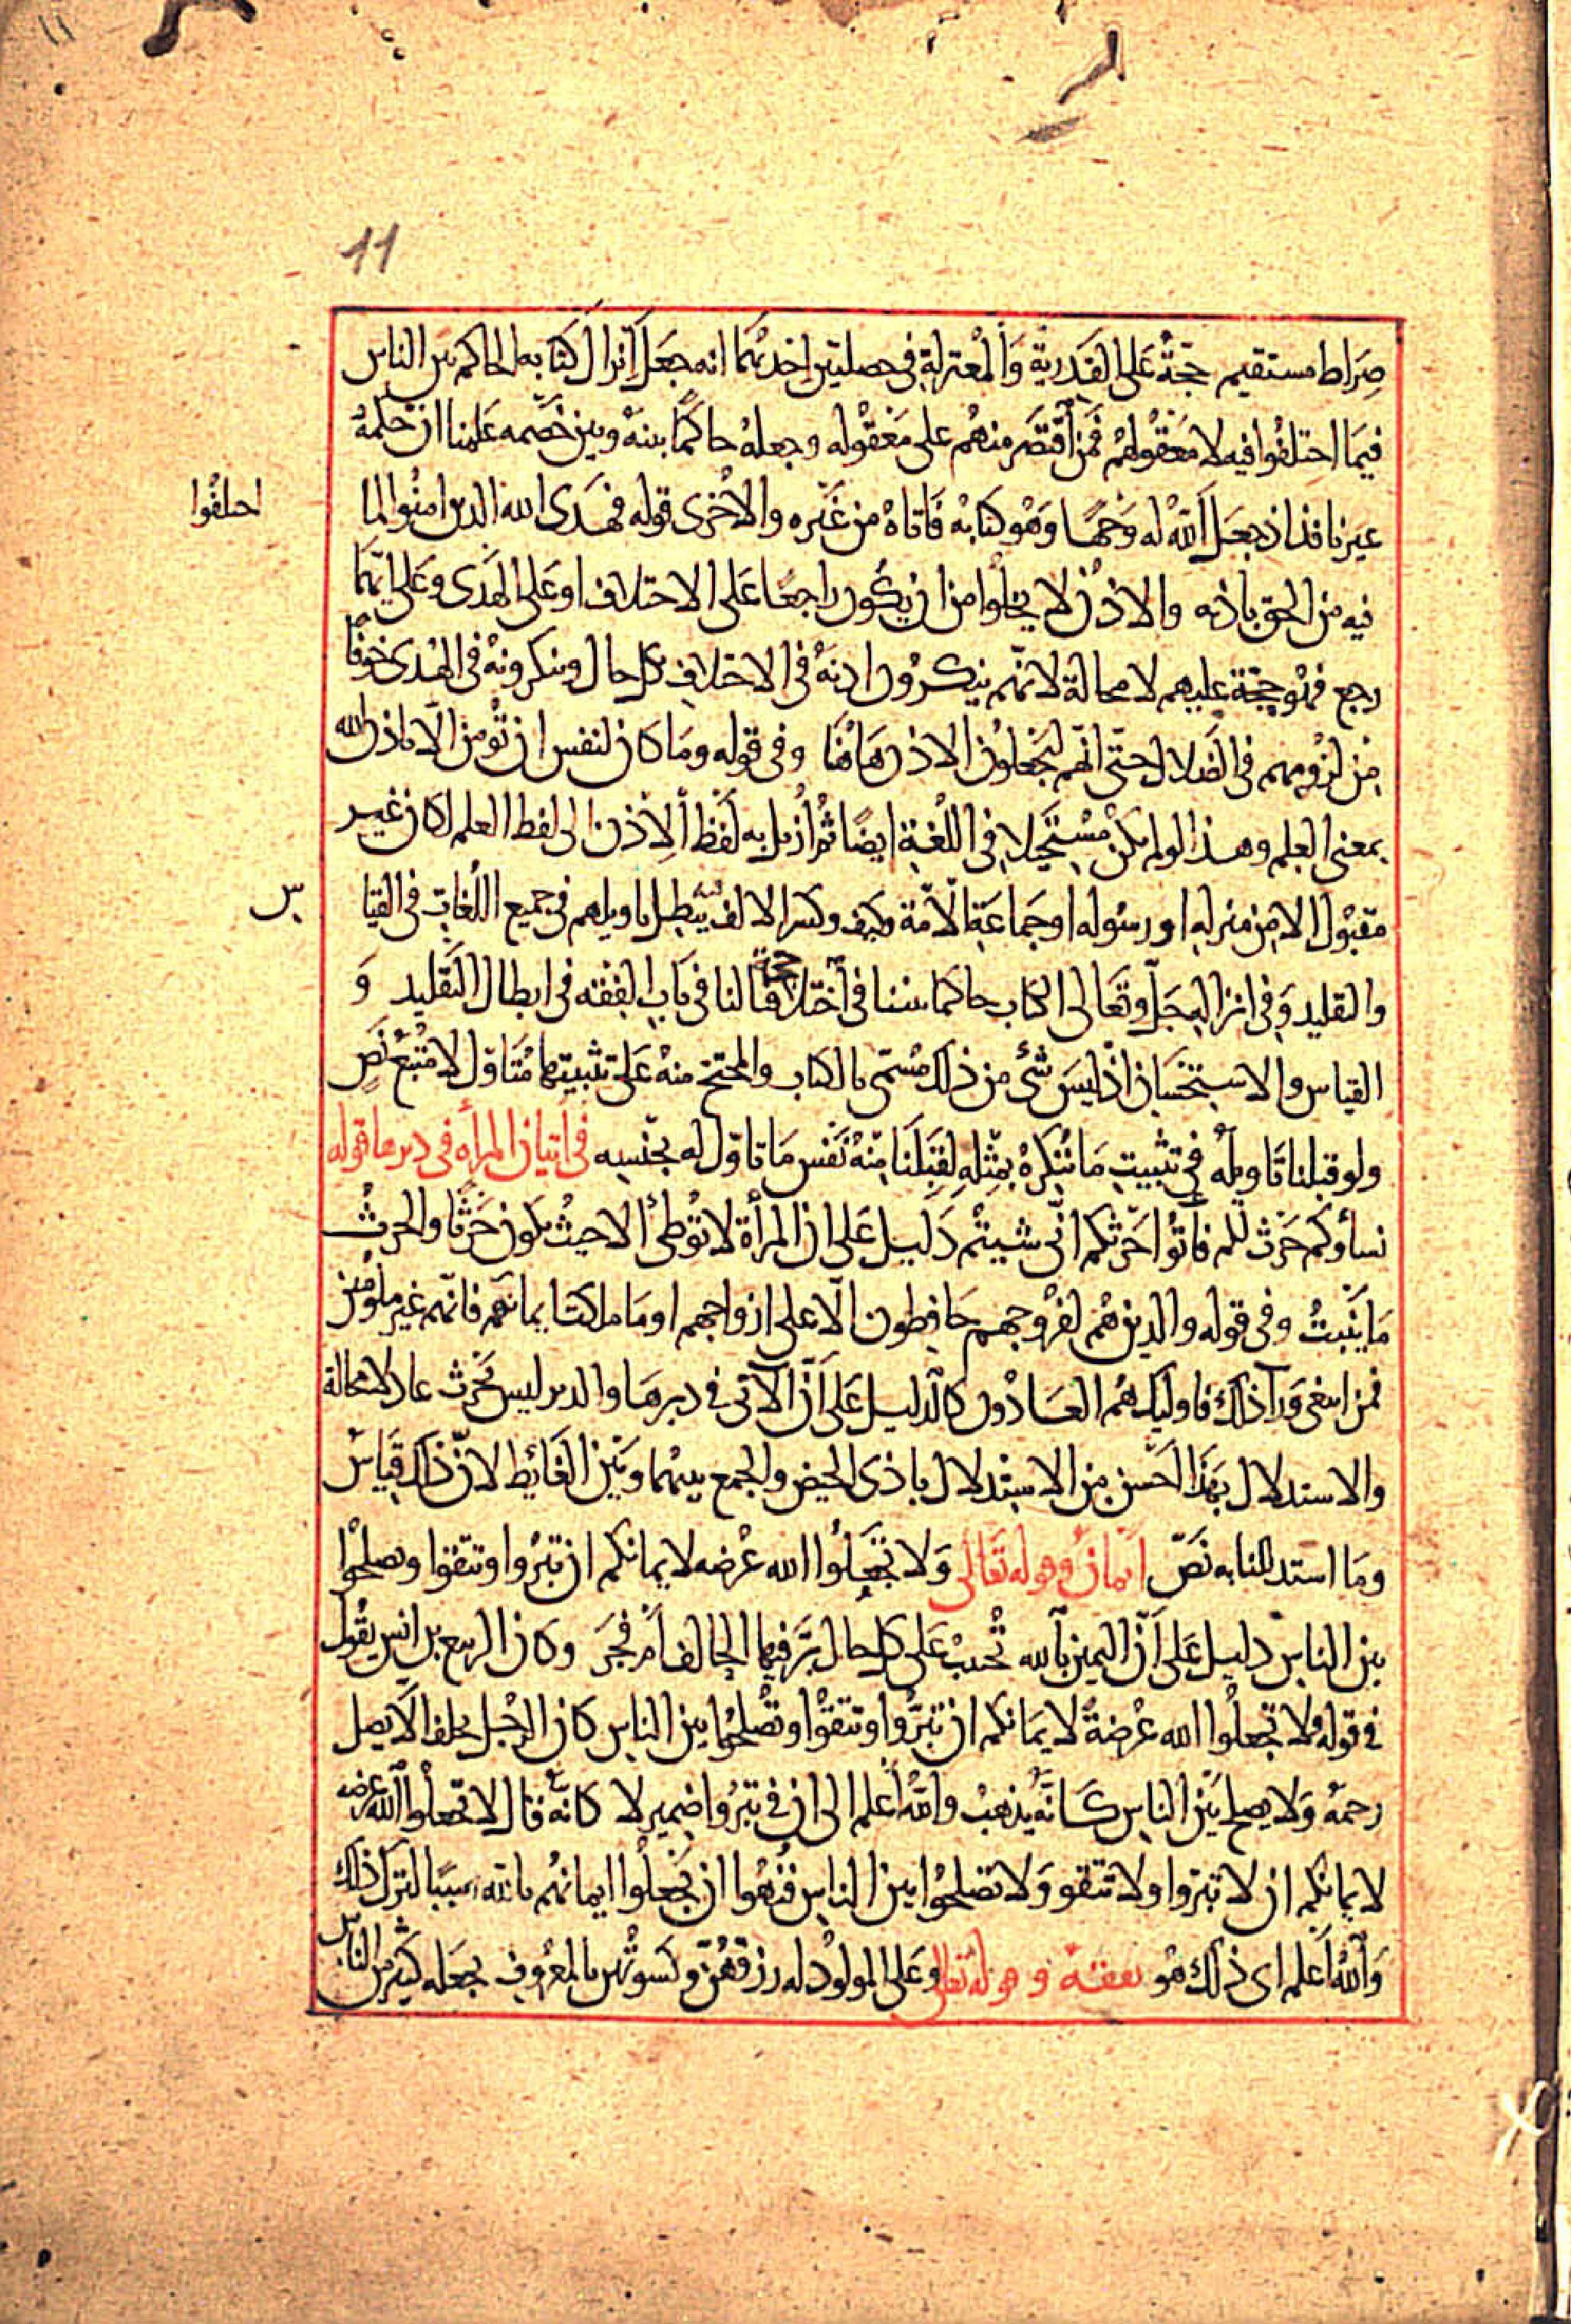 11
صِرَاط مستقيم حجّةٌ على القَدَريّة وَالمُعْتزلةِ فى خصلتين اِحديهُمَا انه جعَلَ اَنزال كتابه الحاكم بين الناس
فيمَا اختلفوُا فيه لا مَعقوُلهُمْ فمَن اقتصَر منهُم على مَعْقوُله وجعلهُ حاكمًا بينهُ وبين خَصْمه عَلمنا ان حكمهُ
غير نافذ اذ جعَل اللّهُ له وَحيهًا وَهُو كتابهْ فَاتاهُ من غَيْره والاخرى قوله فهَدَى الله الذين امنُوا لما
احلفُوا
فيه من الحق باذنه والاذنُ لا يخلُوا من ان يكون راجعًا على الاختلاف او عَلى الهَدى وعَلى ايّهمَا
رجع فهُو حجّة عليهم لا محالة لانّهم ينكرُون اذنهُ فى الاختلاف بكل حال وينكرونهُ فى الهُدى خوفًا
مِن لزومِهم فى الضلال حتّى انّهم ليَجْعلوُن الاذن هَاهُنا وفى قوله ومَا كان لنفس ان تُؤمن الّا باذن الله
بمعنى العِلم وهذا لو لم يكن مُسْتحيلا فى اللّغة ايضًا ثمّ اُزيل به لَفظ اَلاِذن الى لفظ العلم لكان غير
مقبُول الا مِن منزله او رسوُله او جَماعَة الاُمّة وكيف وكسر الالف يُبطل تاويلهم فى جميع اللّغات فى القيا
س
والتقليد وَفى انزاله جَلّ وتعَالى الكتاب حاكمًا بيننا فى اختلافنا حجة لنا فى بَاب الفقه فى ابطال التقليد وَ
القياس والاستحْسَان اذ ليسَ شئ من ذلكَ مُسمّى بالكتاب والمحتج منهُ عَلى تثبيتها مُتَاوّل لا مُتّبع نَصٍ
ولو قبلنا تَاويلهُ فى تثبيتِ مَا نُنكرهُ بمثلِه لقبَلنَا مِنهُ نَفس مَا تاوّل له بجنسِه فى اتيان المرأه فى دبرها قوله
نساؤكم حَرْث لكم فاتوُا حَرْثكم انّى شيتُم دَليل عَلى ان المرأة لا تُوُطئ الا حيثُ يكون حَرْثًا والحرثُ
مَا يُنْبتُ وفى قوله والذين هُم لفرُوجهم حَافِظون الّا على ازواجهم او مَا ملكت ايمانهُم فانّهم غير ملوُمين
فمن ابتغى وَرآ ذلكَ فاوليكَ هُم العَادُون كالّدليل عَلى اَنّ الآتى فى دبرهَا والدبر ليس بحَرْث عاد لا محالة
والاستدلال بهَذا اَحْسن مِن الاستدلال باذى الحيض والجمع بينهُمَا وبَيْن الغَائِط لانّ ذلكَ قيَاسٌ
وَمَا استدللنا به نَصّ ايمان وهوله تعَالى وَلا تَجْعلُوا الله عُرضه لايمانكم ان تبرُّوا وتتقوا وتصلحُوا
بين الناس دليل عَلى اَنّ اليمين بالله تُحْنبُ عَلى كل حال برّ فيها الحالف اَم فجَر وكان الربيع بن انس يقُول
فى قوله ولا تجعلُوا الله عُرْضةً لايمَانكم ان تبَرُّوا وتتقُوا وتُصْلحُوا بين الناس كان الرجُل يحلف الا يصل
رحمهُ وَلا يصلح بَيْن الناس كَانّهُ يذهبْ واللّهُ اعْلم الى ان فى تبرُّوا ضمير لا كانّهُ قال لا تجعلُوا الله عُرضه
لايمانكم ان لا تبرّوا ولا تتقو وَلا تصلحُوا بين الناس فنُهُوا ان يَجْعلُوا ايمانهُم بالله سببًا لترك ذلك
وَاللّهُ اَعلم اى ذلكَ هُو نفقه وهوله تعالى وعَلى المولوُد له رزقهُنّ وكسوتُهن بالمعرُوف بجعله كثير من الناس